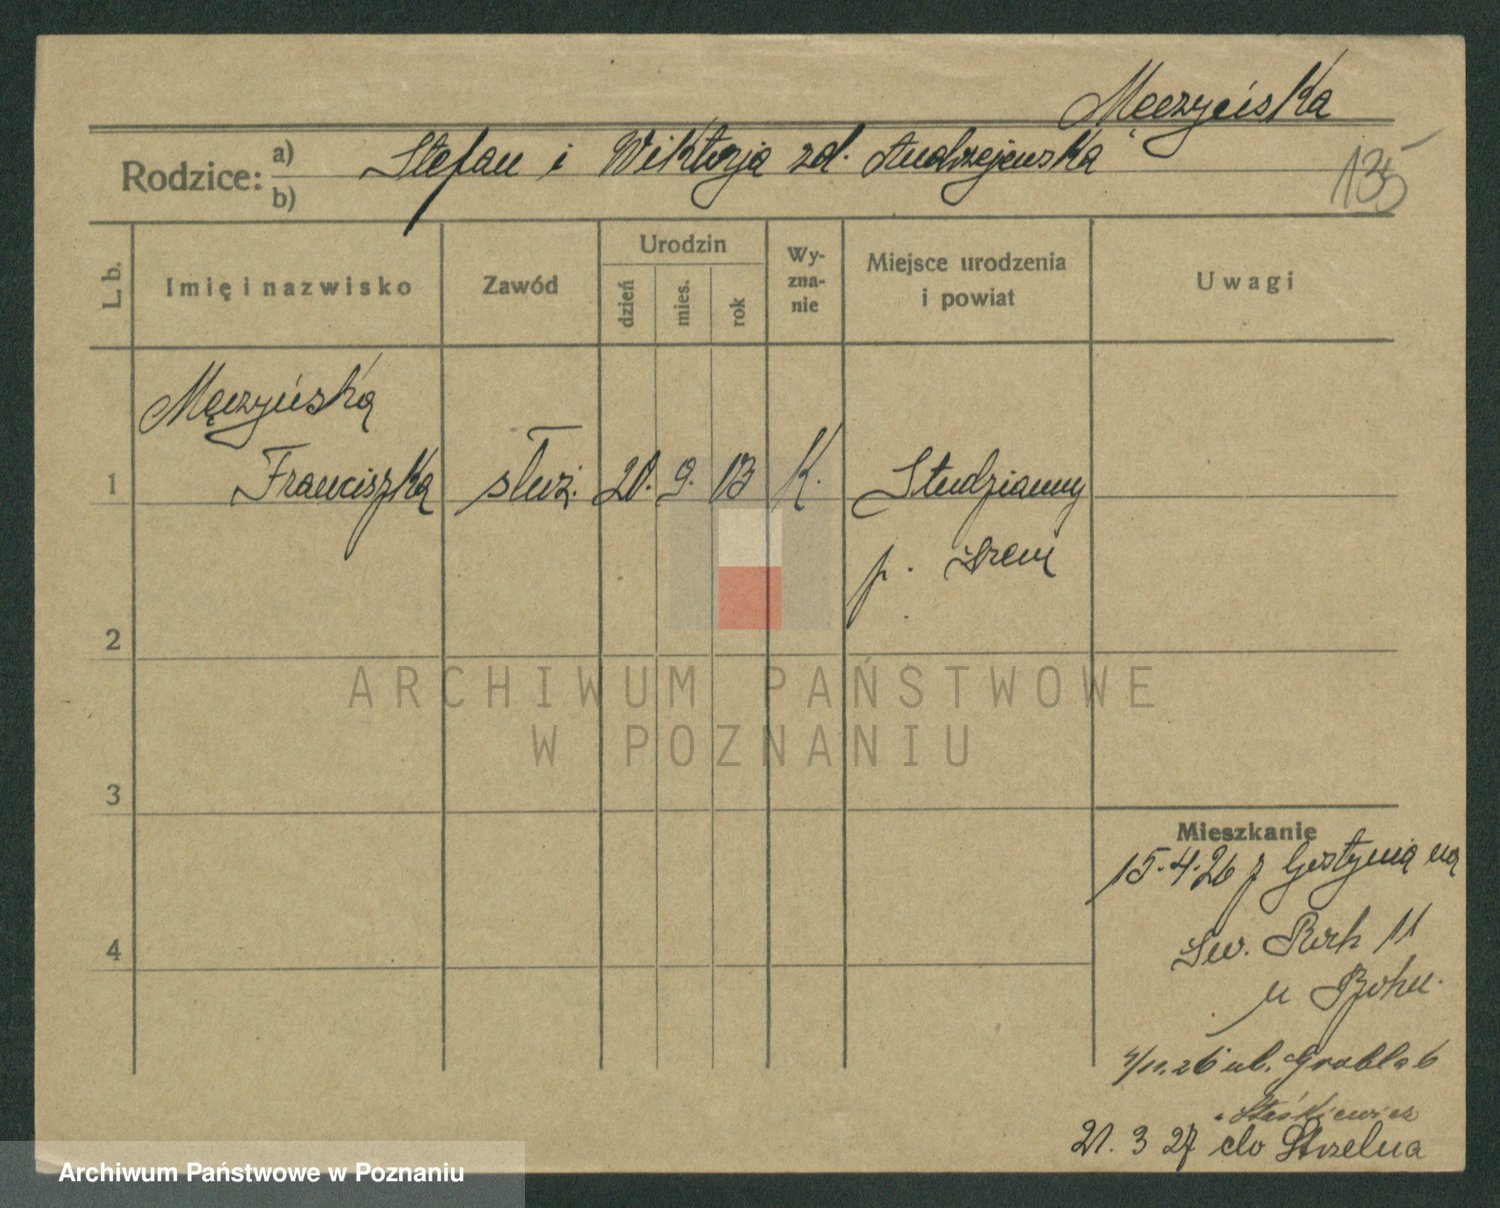 Męczyńska
Rodzice: a) Stefan i Wiktorja zd. Andrzejewska
b)
135
L. b.
Imię i nazwisko
Zawód
Urodzin
dzień
mies.
rok
Wy-
zna-
nie
Miejsce urodzenia
i powiat
Uwagi
Męczyńska
1 Franciszka służ. 20. 9. 13 K. Studzianny
p. Śrem
2
ARCHIWUM PAŃSTWOWE
W POZNANIU
3
Mieszkanie
15.4.26 z Gostynia na
4
Św. Roch 11
u
4/11.26 ul. Grobla 6
Staśkiewicz
21. 3 27 do Strzelna
Archiwum Państwowe w Poznaniu